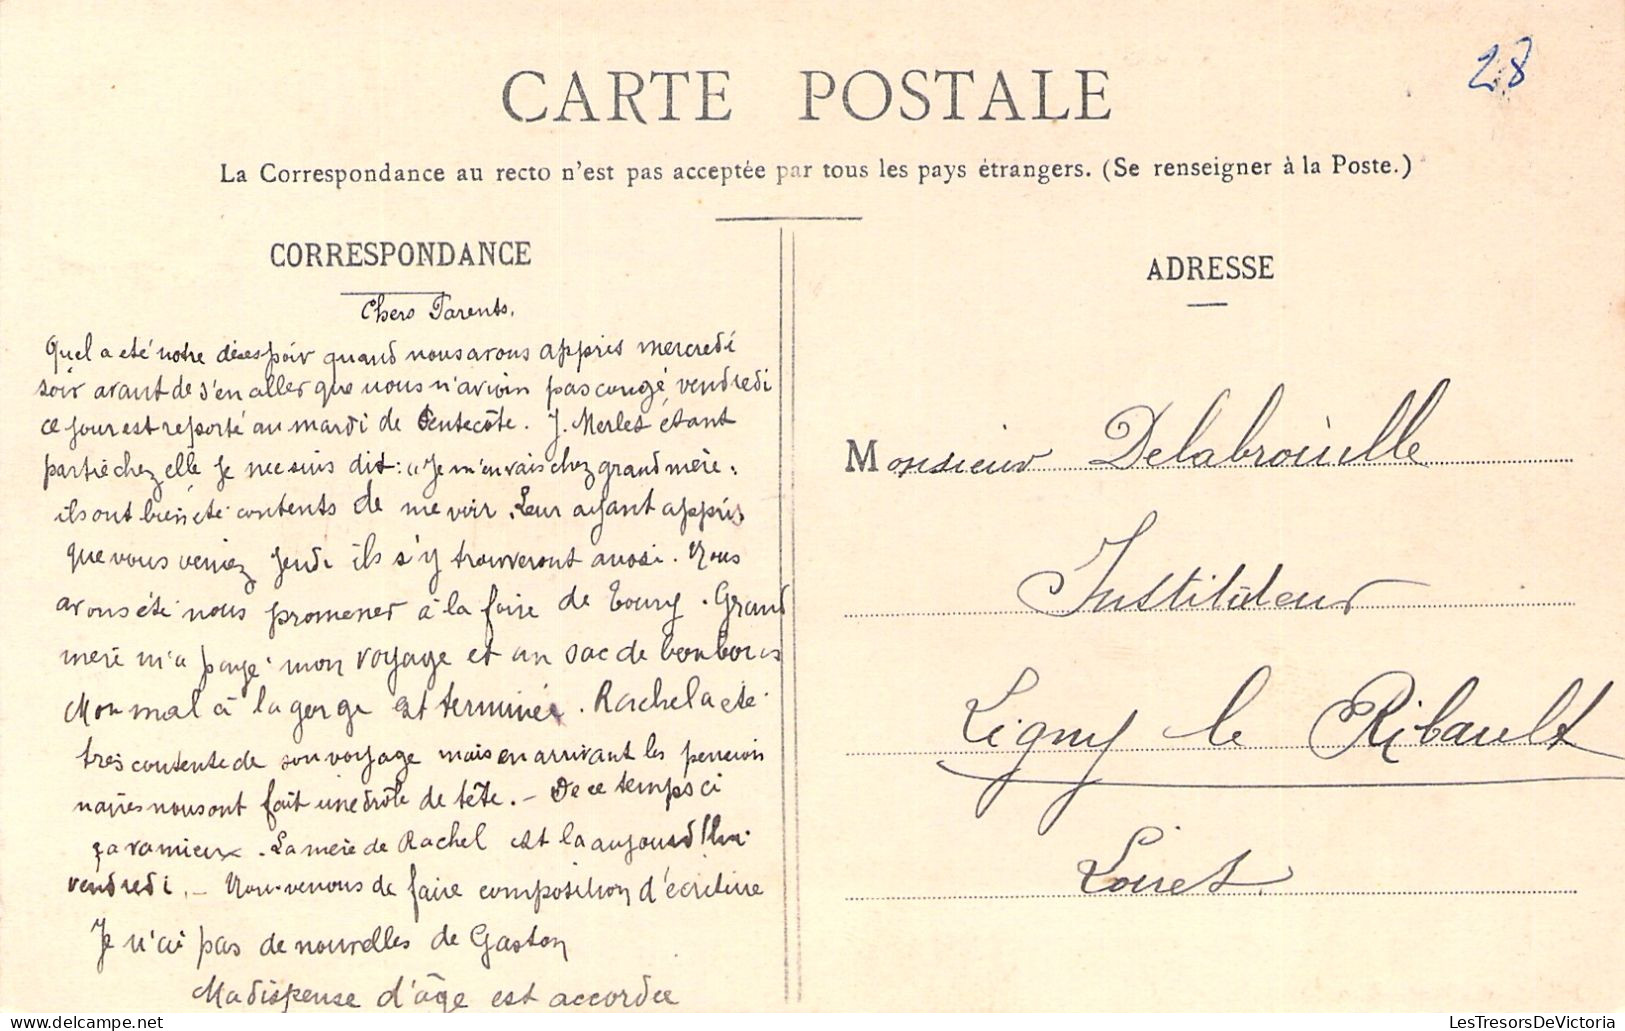 28
CARTE POSTALE
La Correspondance au recto n'est pas acceptée par tous les pays étrangers. (Se renseigner à la Poste.)
CORRESPONDANCE
Chers Parents.
Quel a été notre désespoir quand nous avons appris mercredi
soir avant de s'en aller que nous n'avion pas congé, vendredi
ce jour est reporté au mardi de Pentecôte. J. Merlet étant
partie chez elle je me suis dit: "Je m'en vais chez grand mère.
ils ont bien été contents de me voir. Leur ayant appris
que vous veniez jeudi ils s'y trouveront aussi. Nous
avons été nous promener à la foire de Toury. Grand
mère m'a payé mon voyage et un sac de bonbons
Mon mal à la gorge est terminée. Rachel a été
très contente de son voyage mais en arrivant les pension
naires nous ont fait une drôle de tête. - De ce temps ci
ça va mieux. La mère de Rachel est la aujourd'hui
vendredi. - Nous venons de faire composition d'écriture
Je n'ai pas de nouvelles de Gaston
Ma dispense d'âge est accordée
ADRESSE
Monsieur Delabrouille
Instituteur
Ligny le Ribault
Loiret
LesTresorsDeVictoria
delcampe.net